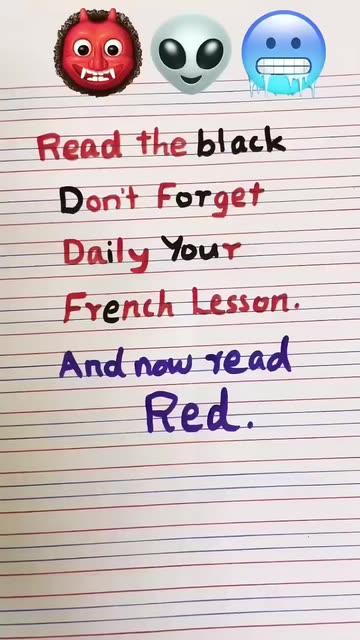 Read the black
Don't Forget
Daily Your
French Lesson.
And now read
Red.